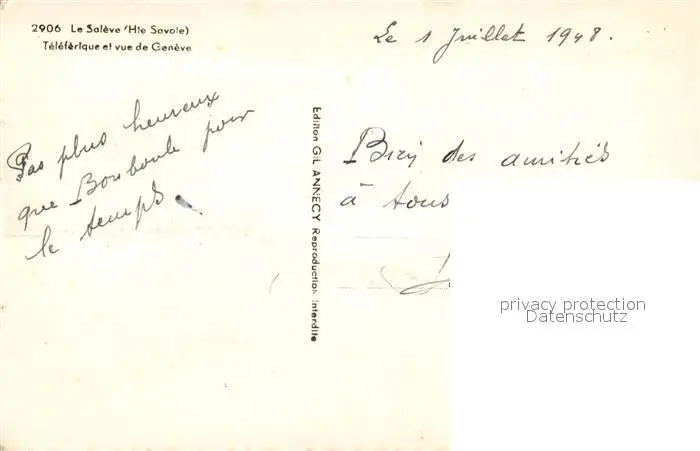 2906 Le Salève (Hte Savoie)
Téléférique et vue de Genève
Le 1 Juillet 1948.
Pas plus heureux
que Bouboule pour
le temps.
Edition GIL ANNECY Reproduction interdite
Bien des amitiés
à tous
privacy protection
Datenschutz